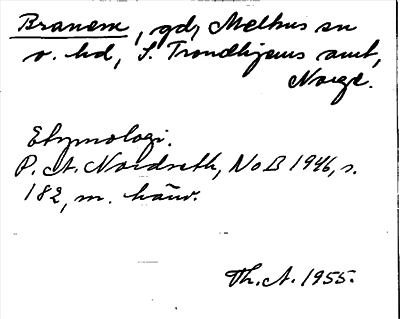 Branem, gd, Melhus sn
o. hd, S. Trondhjems amt,
Norge.
Etymologi.
P. A. Nordseth, NoB 1946, s.
182, m. hänv.
Th. A. 1955.